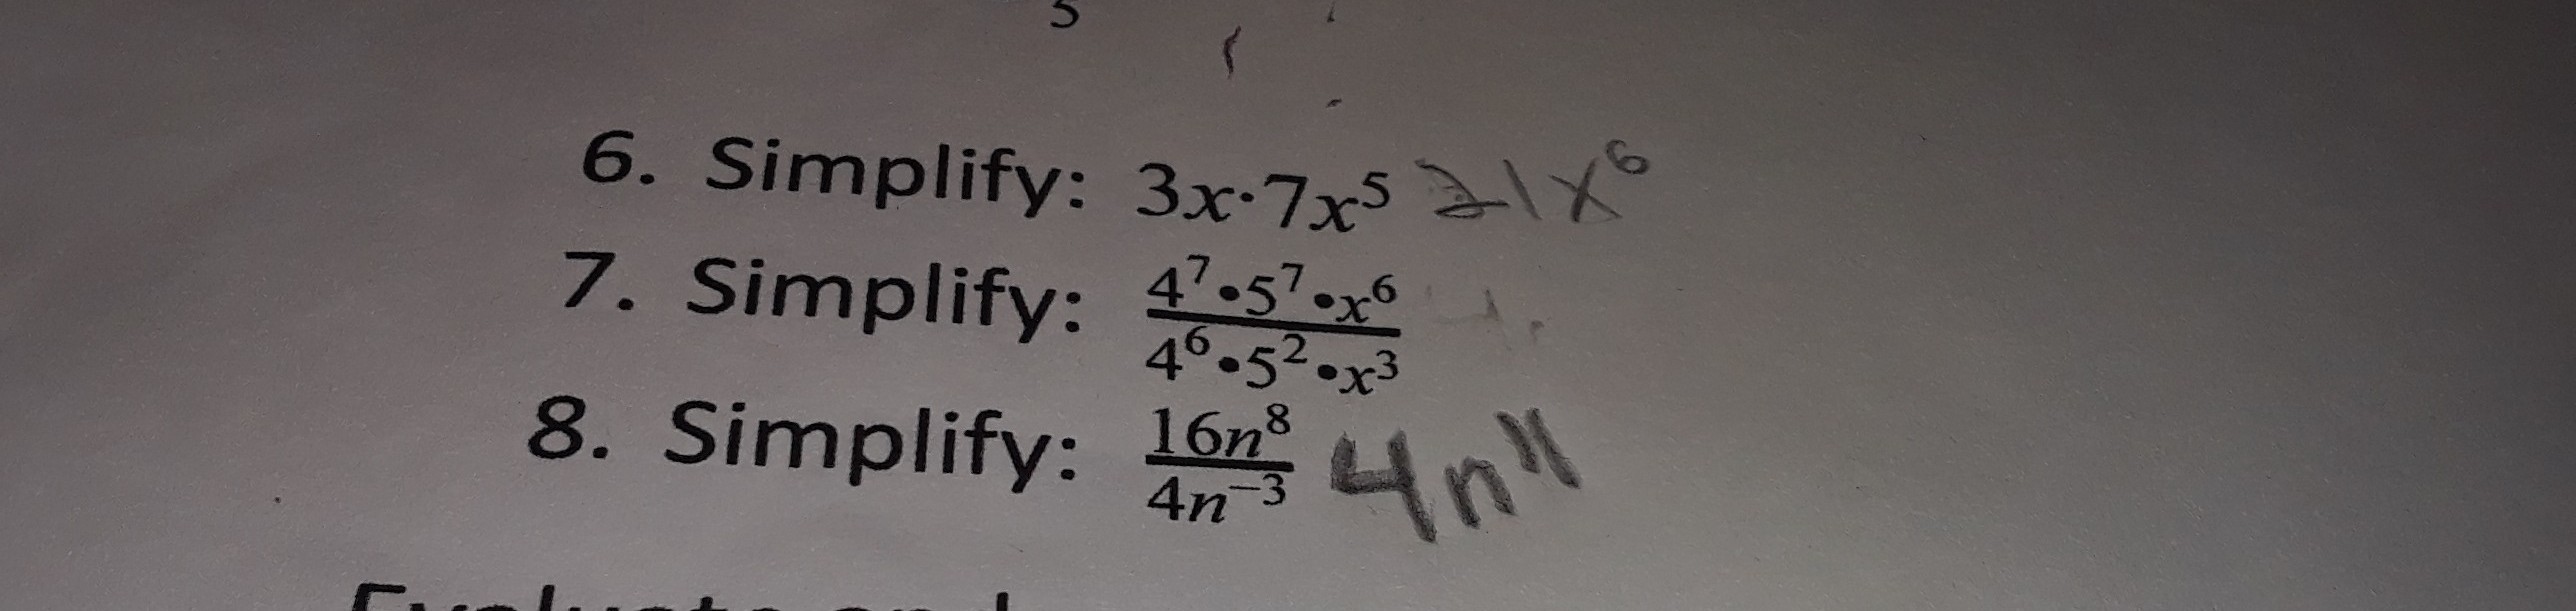 5
6. Simplify: 3x·7x⁵ 21x⁶
7. Simplify: 4⁷•5⁷•x⁶
4⁶•5²•x³
8. Simplify: 16n⁸
4n⁻³ 4n¹¹